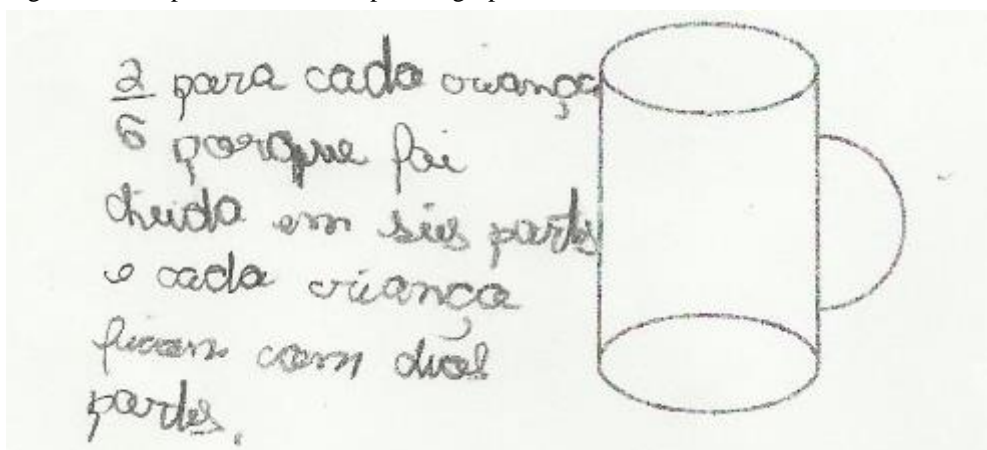 2 para cada criança
6 porque foi
dividida em seis partes
e cada criança
ficam com duas
partes.